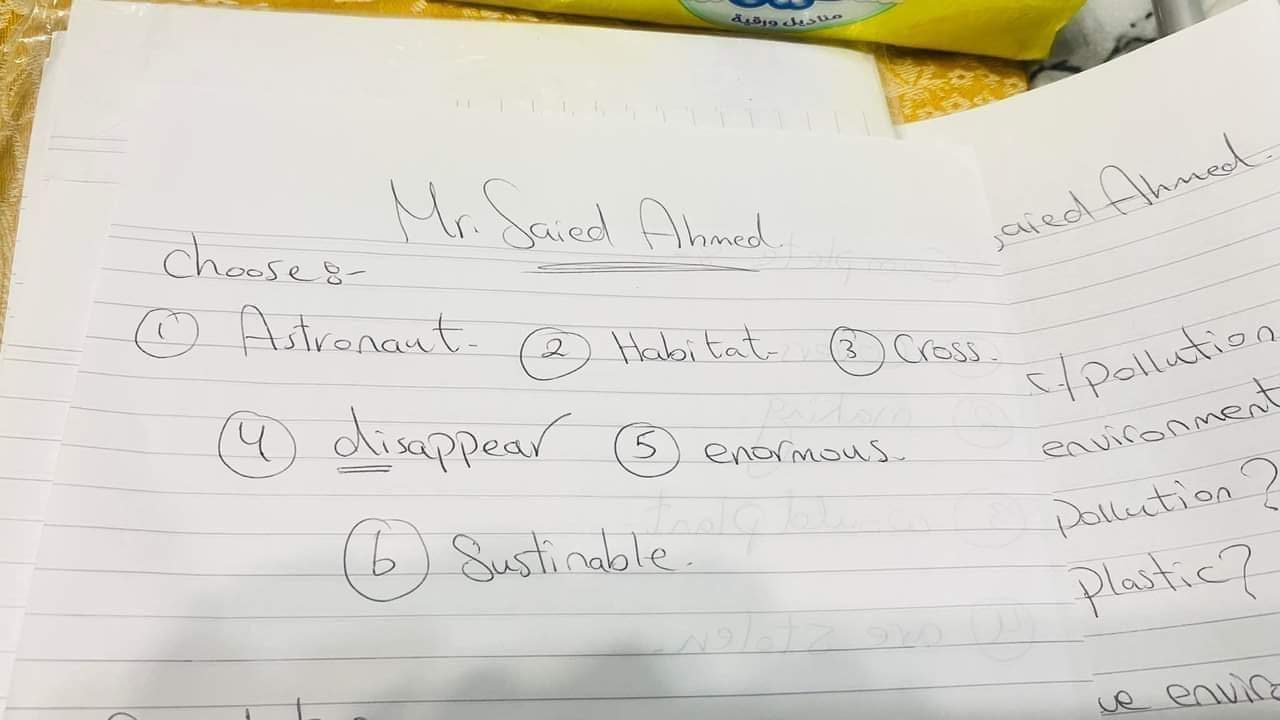 مناديل ورقية
Mr. Saied Ahmed.
Choose:-
① Astronaut. ② Habitat. ③ Cross.
④ disappear ⑤ enormous.
⑥ Sustinable.
aied Ahmed.
/pollution
environment
pollution?
plastic?
ve enviro